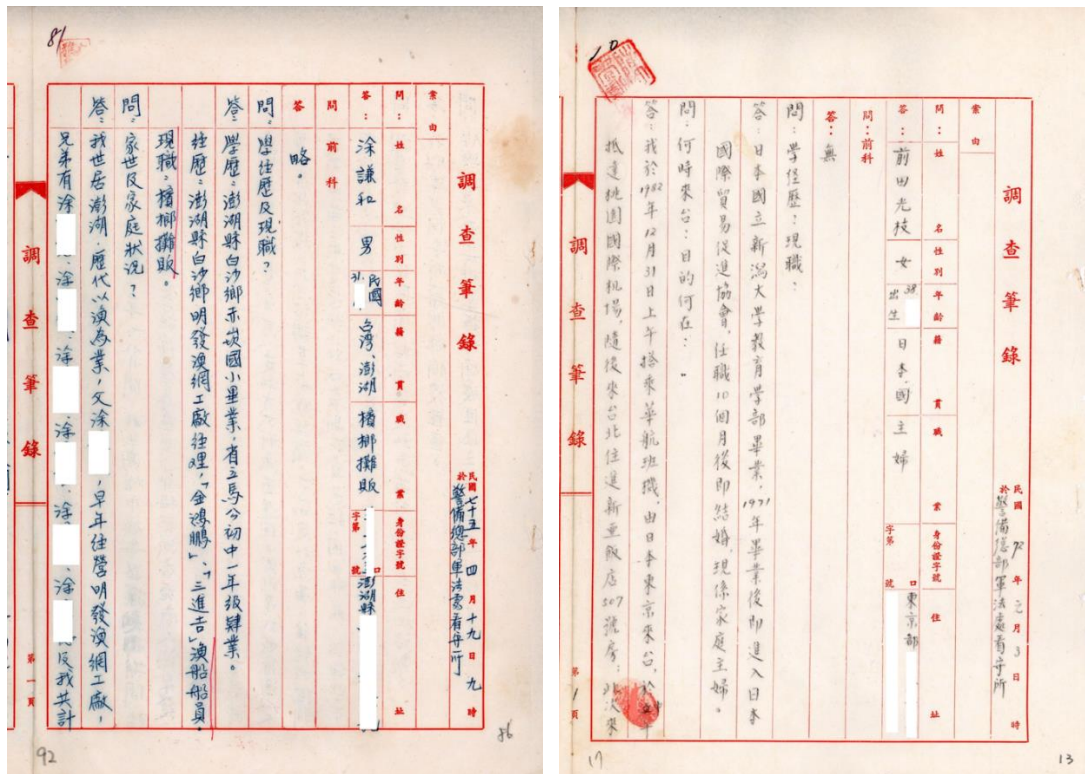 81
調查筆錄
民國七十五年四月十九日九時
於警備總部軍法處看守所
案由
問：姓名 性別 年齡 籍貫 職業 身份證字號 住址
答：涂謙和 男 民國31. 台灣、澎湖 檳榔攤販 字第 號 口 澎湖縣
問 前科
答 略。
問：學經歷及現職？
答：學歷：澎湖縣白沙鄉赤崁國小畢業，省立馬公初中一年級肄業。
經歷：澎湖縣白沙鄉明發漁網工廠經理，「金鴻鵬」、「三進吉」漁船船員。
現職：檳榔攤販。
問：家世及家庭狀況？
答：我世居澎湖，歷代以漁為業，父涂，早年經營明發漁網工廠，
兄弟有涂、涂、涂、涂、涂、涂及我共計
調查筆錄
第一頁
92
86
10
調查筆錄
民國72年元月3日 時
於警備總部軍法處看守所
案由
問：姓名 性別 年齡 籍貫 職業 身份證字號 住址
答：前田光枝 女 38. 出生 日本國 主婦 字第 號 口 東京都
問：前科
答：無
問：學經歷？現職：
答：日本國立新潟大學教育學部畢業，1971年畢業後即進入日本
國際貿易促進協會，任職10個月後即結婚，現係家庭主婦。
問：何時來台？目的何在：
答：我於1982年12月31日上午搭乘華航班機，由日本東京來台，於
抵達桃園國際機場，隨後來台北住進新亞飯店307號房，此次來
調查筆錄
第1頁
17
13